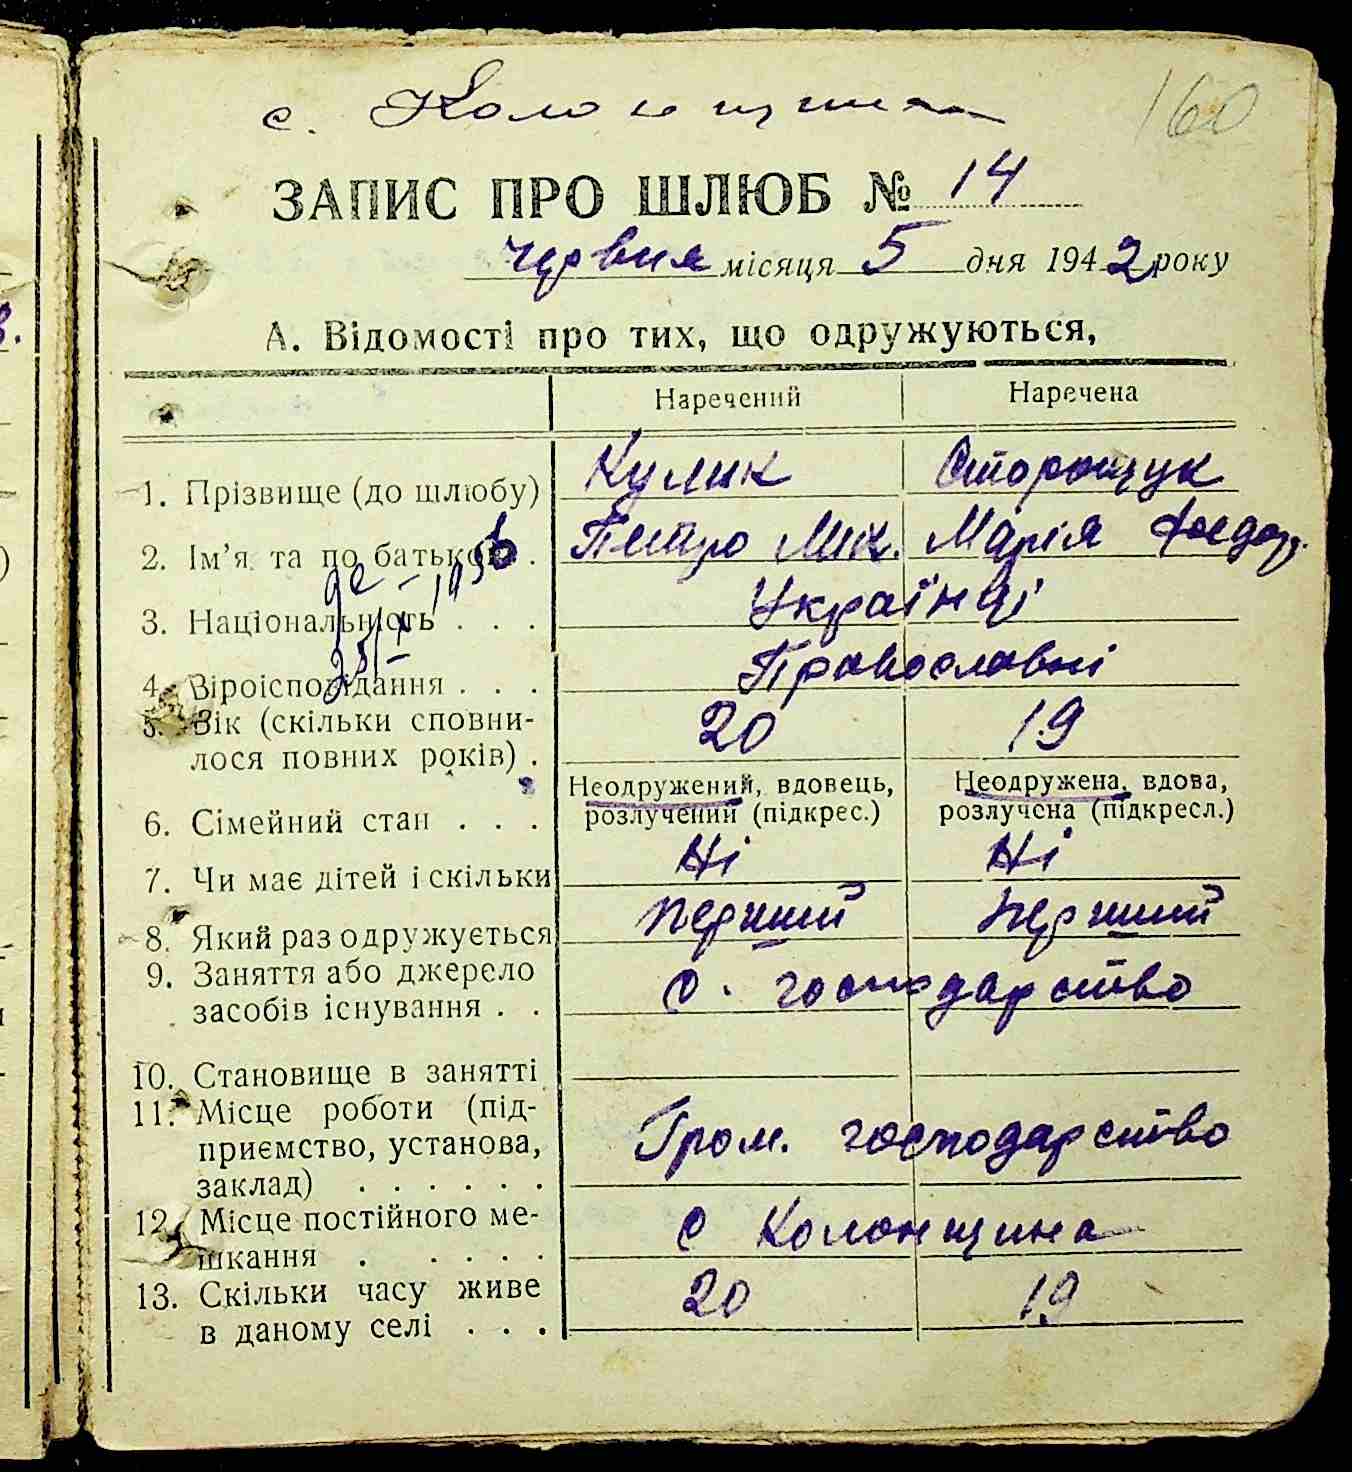 с. Колонщина
160
ЗАПИС ПРО ШЛЮБ № 14
червня місяця 5 дня 1942 року
А. Відомості про тих, що одружуються,
Наречений Наречена
1. Прізвище (до шлюбу) Кулик Сторощук
2. Ім'я та по батькові . Петро Мик. Марія Феодо.
3. Національність . . . Українці
4. Віроісповідання . . . Православні
5. Вік (скільки сповни-
лося повних років) . 20 19
Неодружений, вдовець, Неодружена, вдова,
розлучений (підкрес.) розлучена (підкресл.)
6. Сімейний стан . . .
7. Чи має дітей і скільки Ні Ні
8. Який раз одружується перший перший
9. Заняття або джерело
засобів існування . . с. господарство
10. Становище в занятті
11. Місце роботи (під-
приємство, установа,
заклад) . . . . . . Гром. господарство
12. Місце постійного ме-
шкання . . . . . с Колонщина
13. Скільки часу живе
в даному селі . . . 20 19